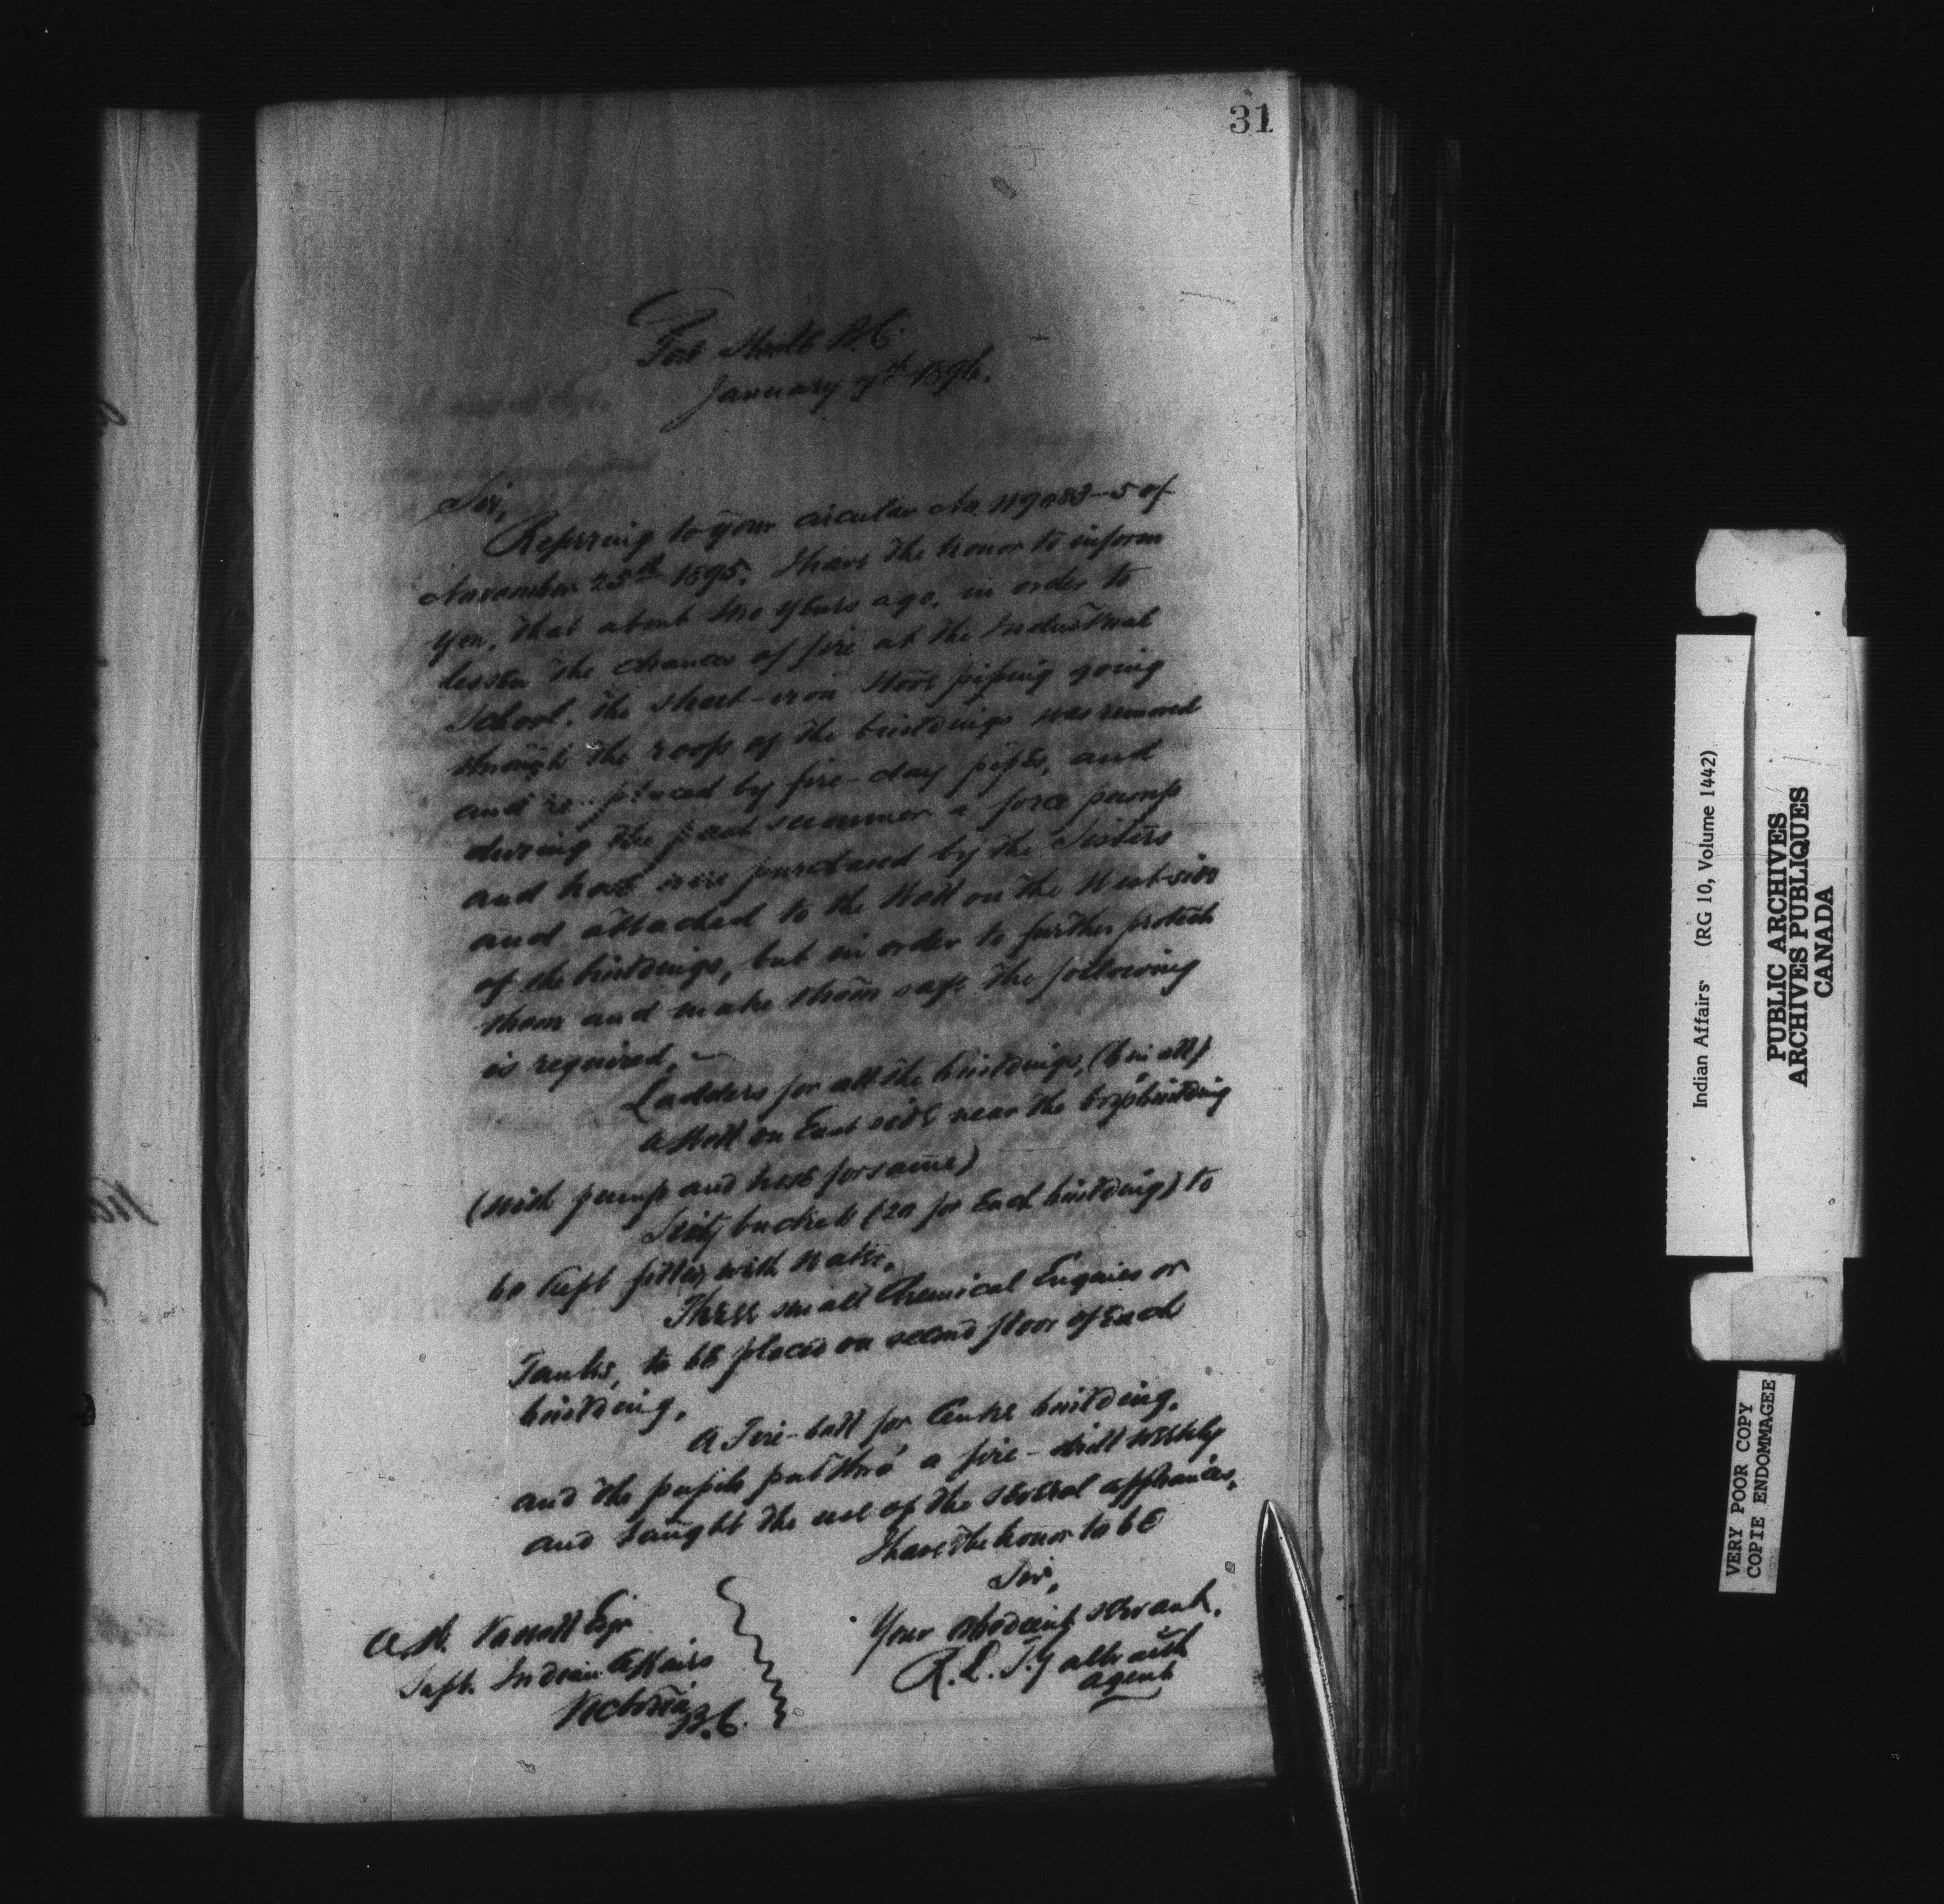 31
Fort Steele B.C.
January 7th 1896.
Sir,
Referring to your circular No. 119083-5 of
November 25th 1895. I have the honor to inform
you, that about two years ago, in order to
lessen the chances of fire at the Industrial
School, the sheet-iron stove piping going
through the roofs of the buildings was removed
and re-placed by fire-clay pipes, and
during the past summer a force pump
and hose were purchased by the Sisters
and attached to the Well on the West-side
of the buildings, but in order to further protect
them and make them safe the following
is required,-
Ladders for all the buildings, (6 in all)
A Well on East side near the boys building
(with pump and hose for same)
Sixty buckets (20 for Each building) to
be kept filled with water.
Three small Chemical Engines or
Tanks, to be placed on second floor of Each
building.
A Fire-bell for Centre building.
and the pupils put thro' a fire-drill weekly
and taught the use of the several appliances.
I have the honor to be
Sir,
Your obedient servant,
R. L. T. Galbraith
Agent
A. W. Vowell Esqr
Supt. Indian Affairs
Victoria
B.C.
Indian Affairs (RG 10, Volume 1442)
PUBLIC ARCHIVES
ARCHIVES PUBLIQUES
CANADA
VERY POOR COPY
COPIE ENDOMMAGEE